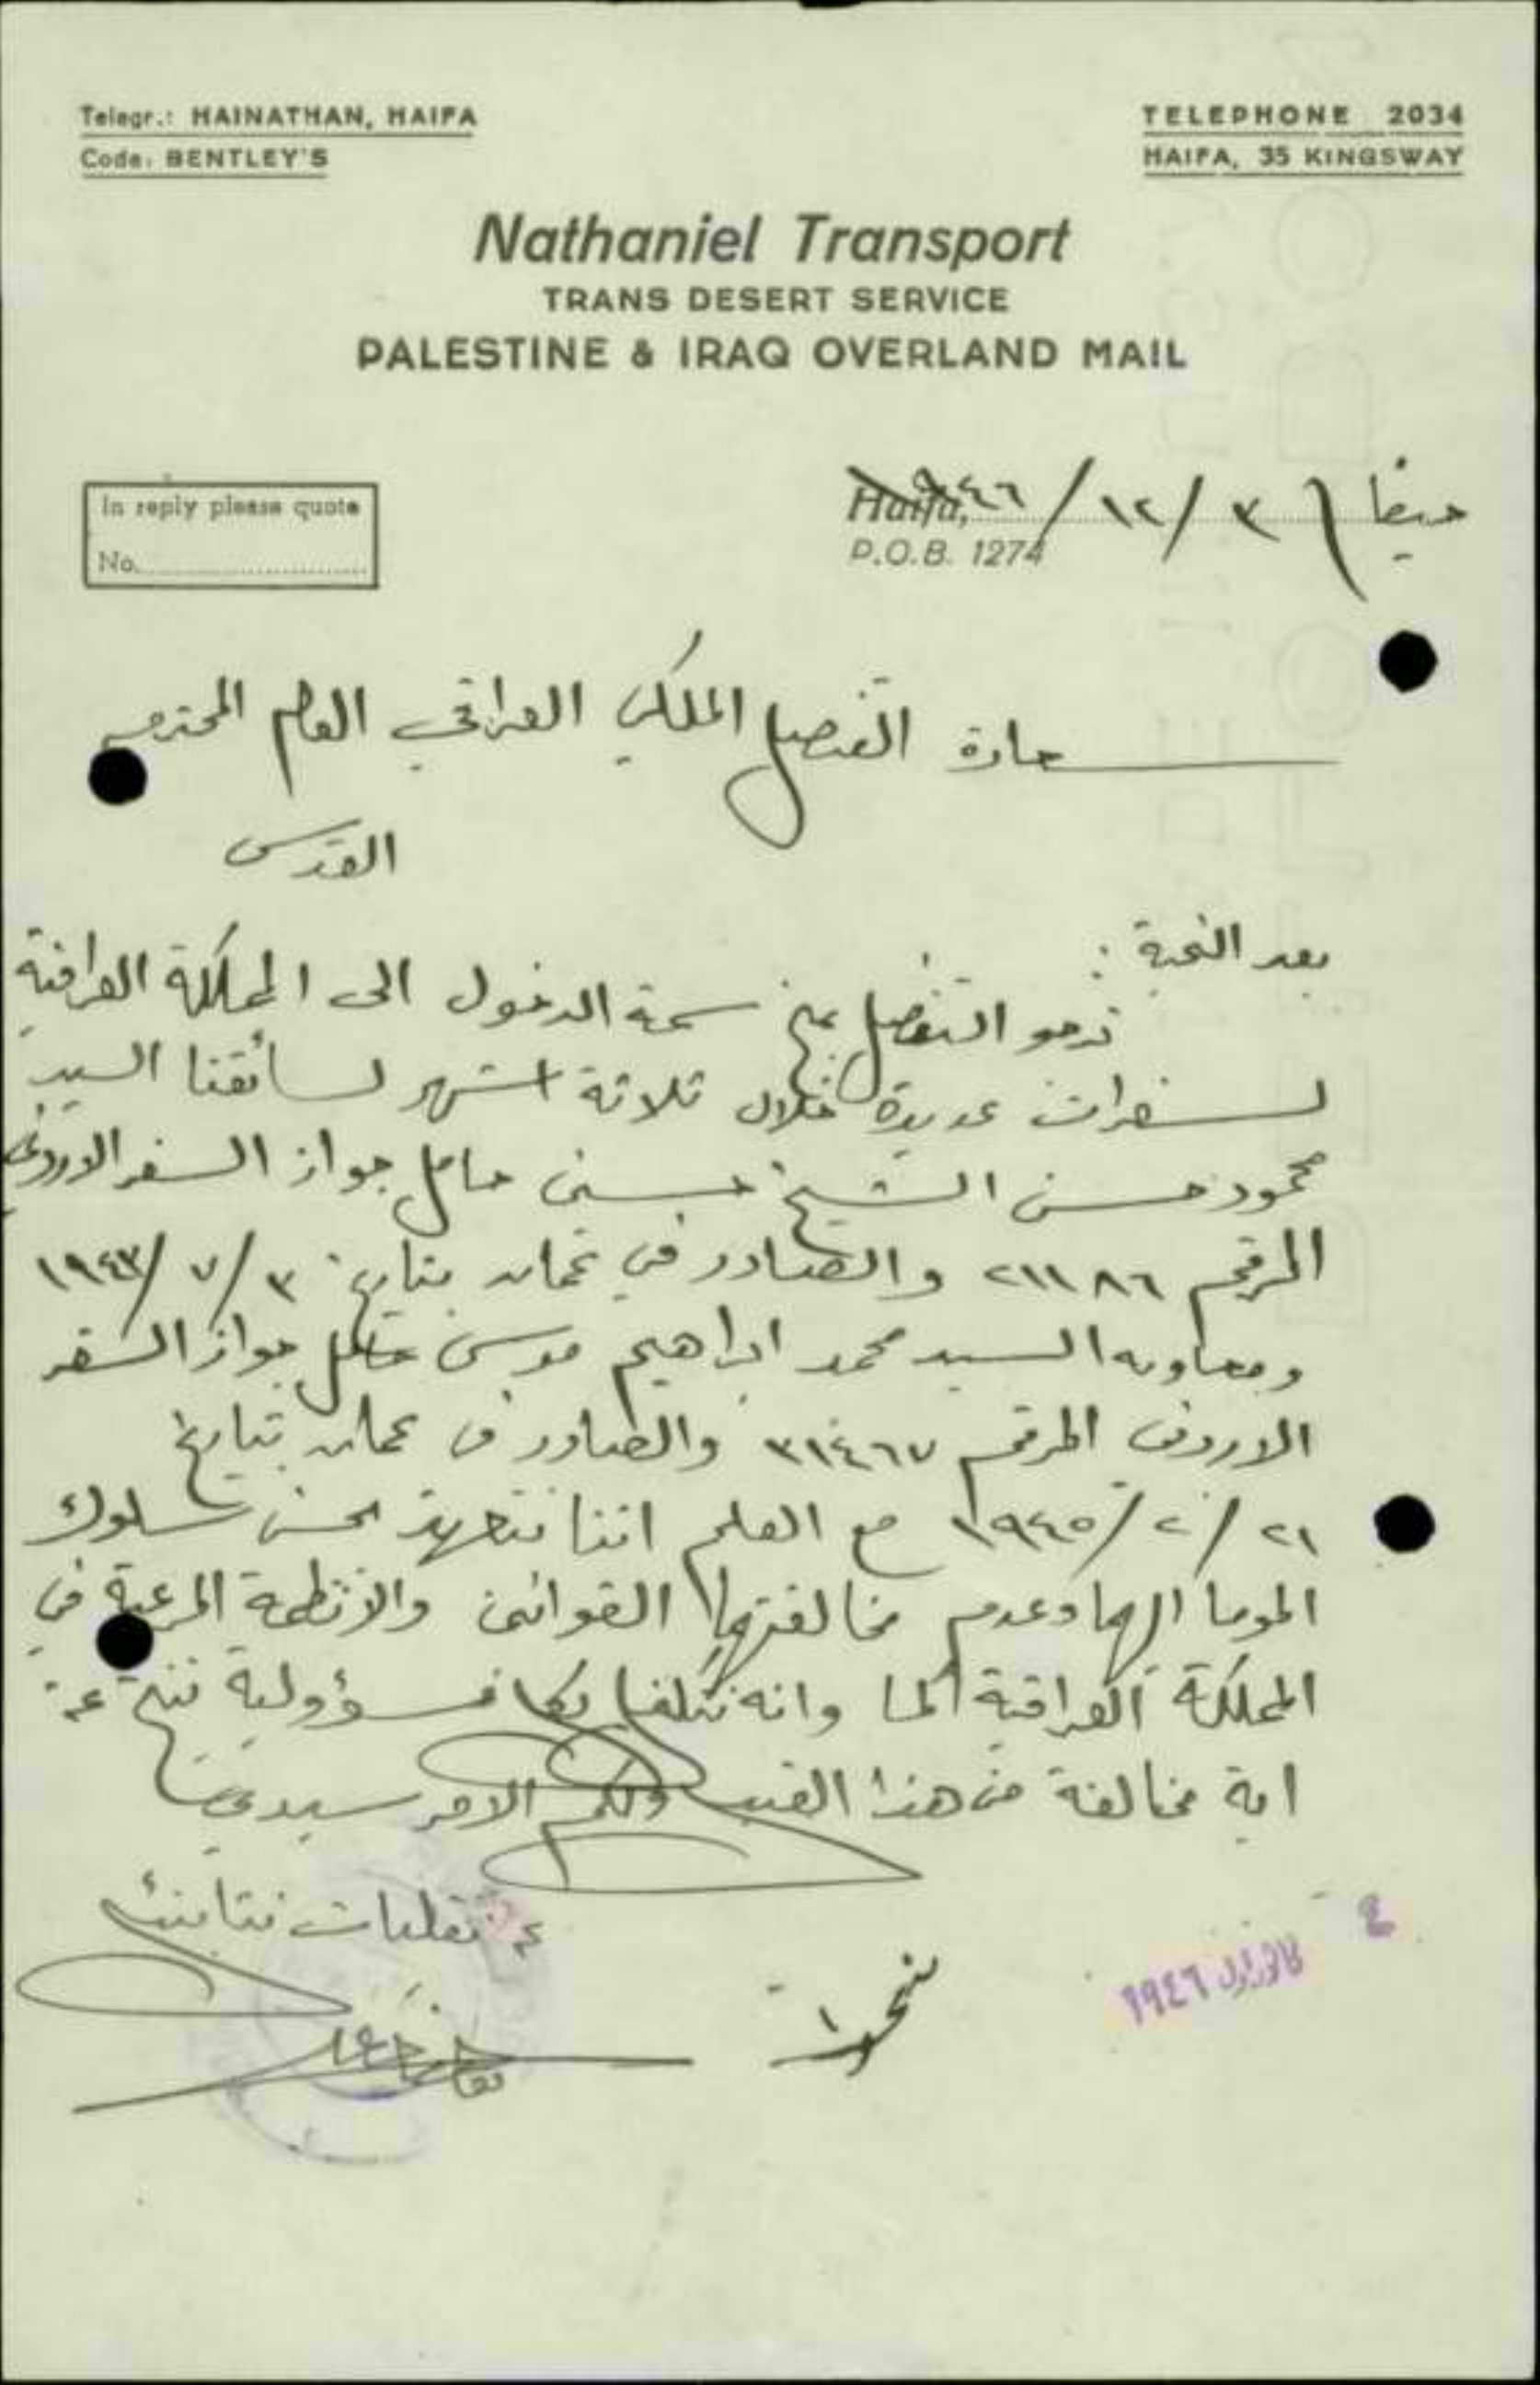 Telegr.: HAINATHAN, HAIFA
Code: BENTLEY'S
TELEPHONE 2034
HAIFA, 35 KINGSWAY
Nathaniel Transport
TRANS DESERT SERVICE
PALESTINE & IRAQ OVERLAND MAIL
In reply please quote
No.
حيفا ٣/١٢/٩٤٦
Haifa,
P.O.B. 1274
سعادة القنصل الملكي العراقي العام المحترم
القدس
بعد التحية :
نرجو التفضل بمنح سمة الدخول الى المملكة العراقية
لسفرات عديدة خلال ثلاثة اشهر لسائقنا السيد
محمود حسن الشيخ حسين حامل جواز السفر الاردني
المرقم ٢١١٨٦ والصادر في عمان بتاريخ ٣/٧/١٩٤٣
ومعاونه السيد محمد ابراهيم موسى حامل جواز السفر
الاردني المرقم ٣١٤٦٧ والصادر في عمان بتاريخ
٢١/٢/١٩٤٥ مع العلم اننا نتعهد بحسن سلوك
الموما اليهما وعدم مخالفتهما القوانين والانظمة المرعية في
المملكة العراقية وانه مسؤولية تنتج عن
اية مخالفة من هذا القبيل ولكم الامر سيدي
ع نقليات نتانيل
٤ ك الاول ١٩٤٦